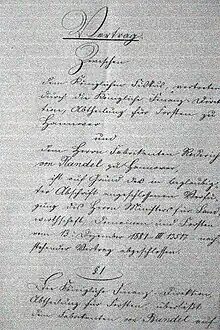 Vertrag
Zwischen
dem Königlichen Fiskus, vertreten
durch die Königliche Finanz-Direk-
tion Abtheilung für Forsten zu
Hannover
und
dem Herrn Fabrikanten
von Bandel zu Hannover,
ist auf Grund des in beglaubigter
Abschrift angeschlossenen Verfü-
gung des Herrn Ministers für Land-
wirthschaft, Domainen und Forsten
vom 13 Dezember 1881 III 13517 nach-
stehender Vertrag abgeschlossen.
§ 1
Die Königliche Finanz-Direktion
Abtheilung für Forsten überläßt
dem Fabrikanten von Bandel auf